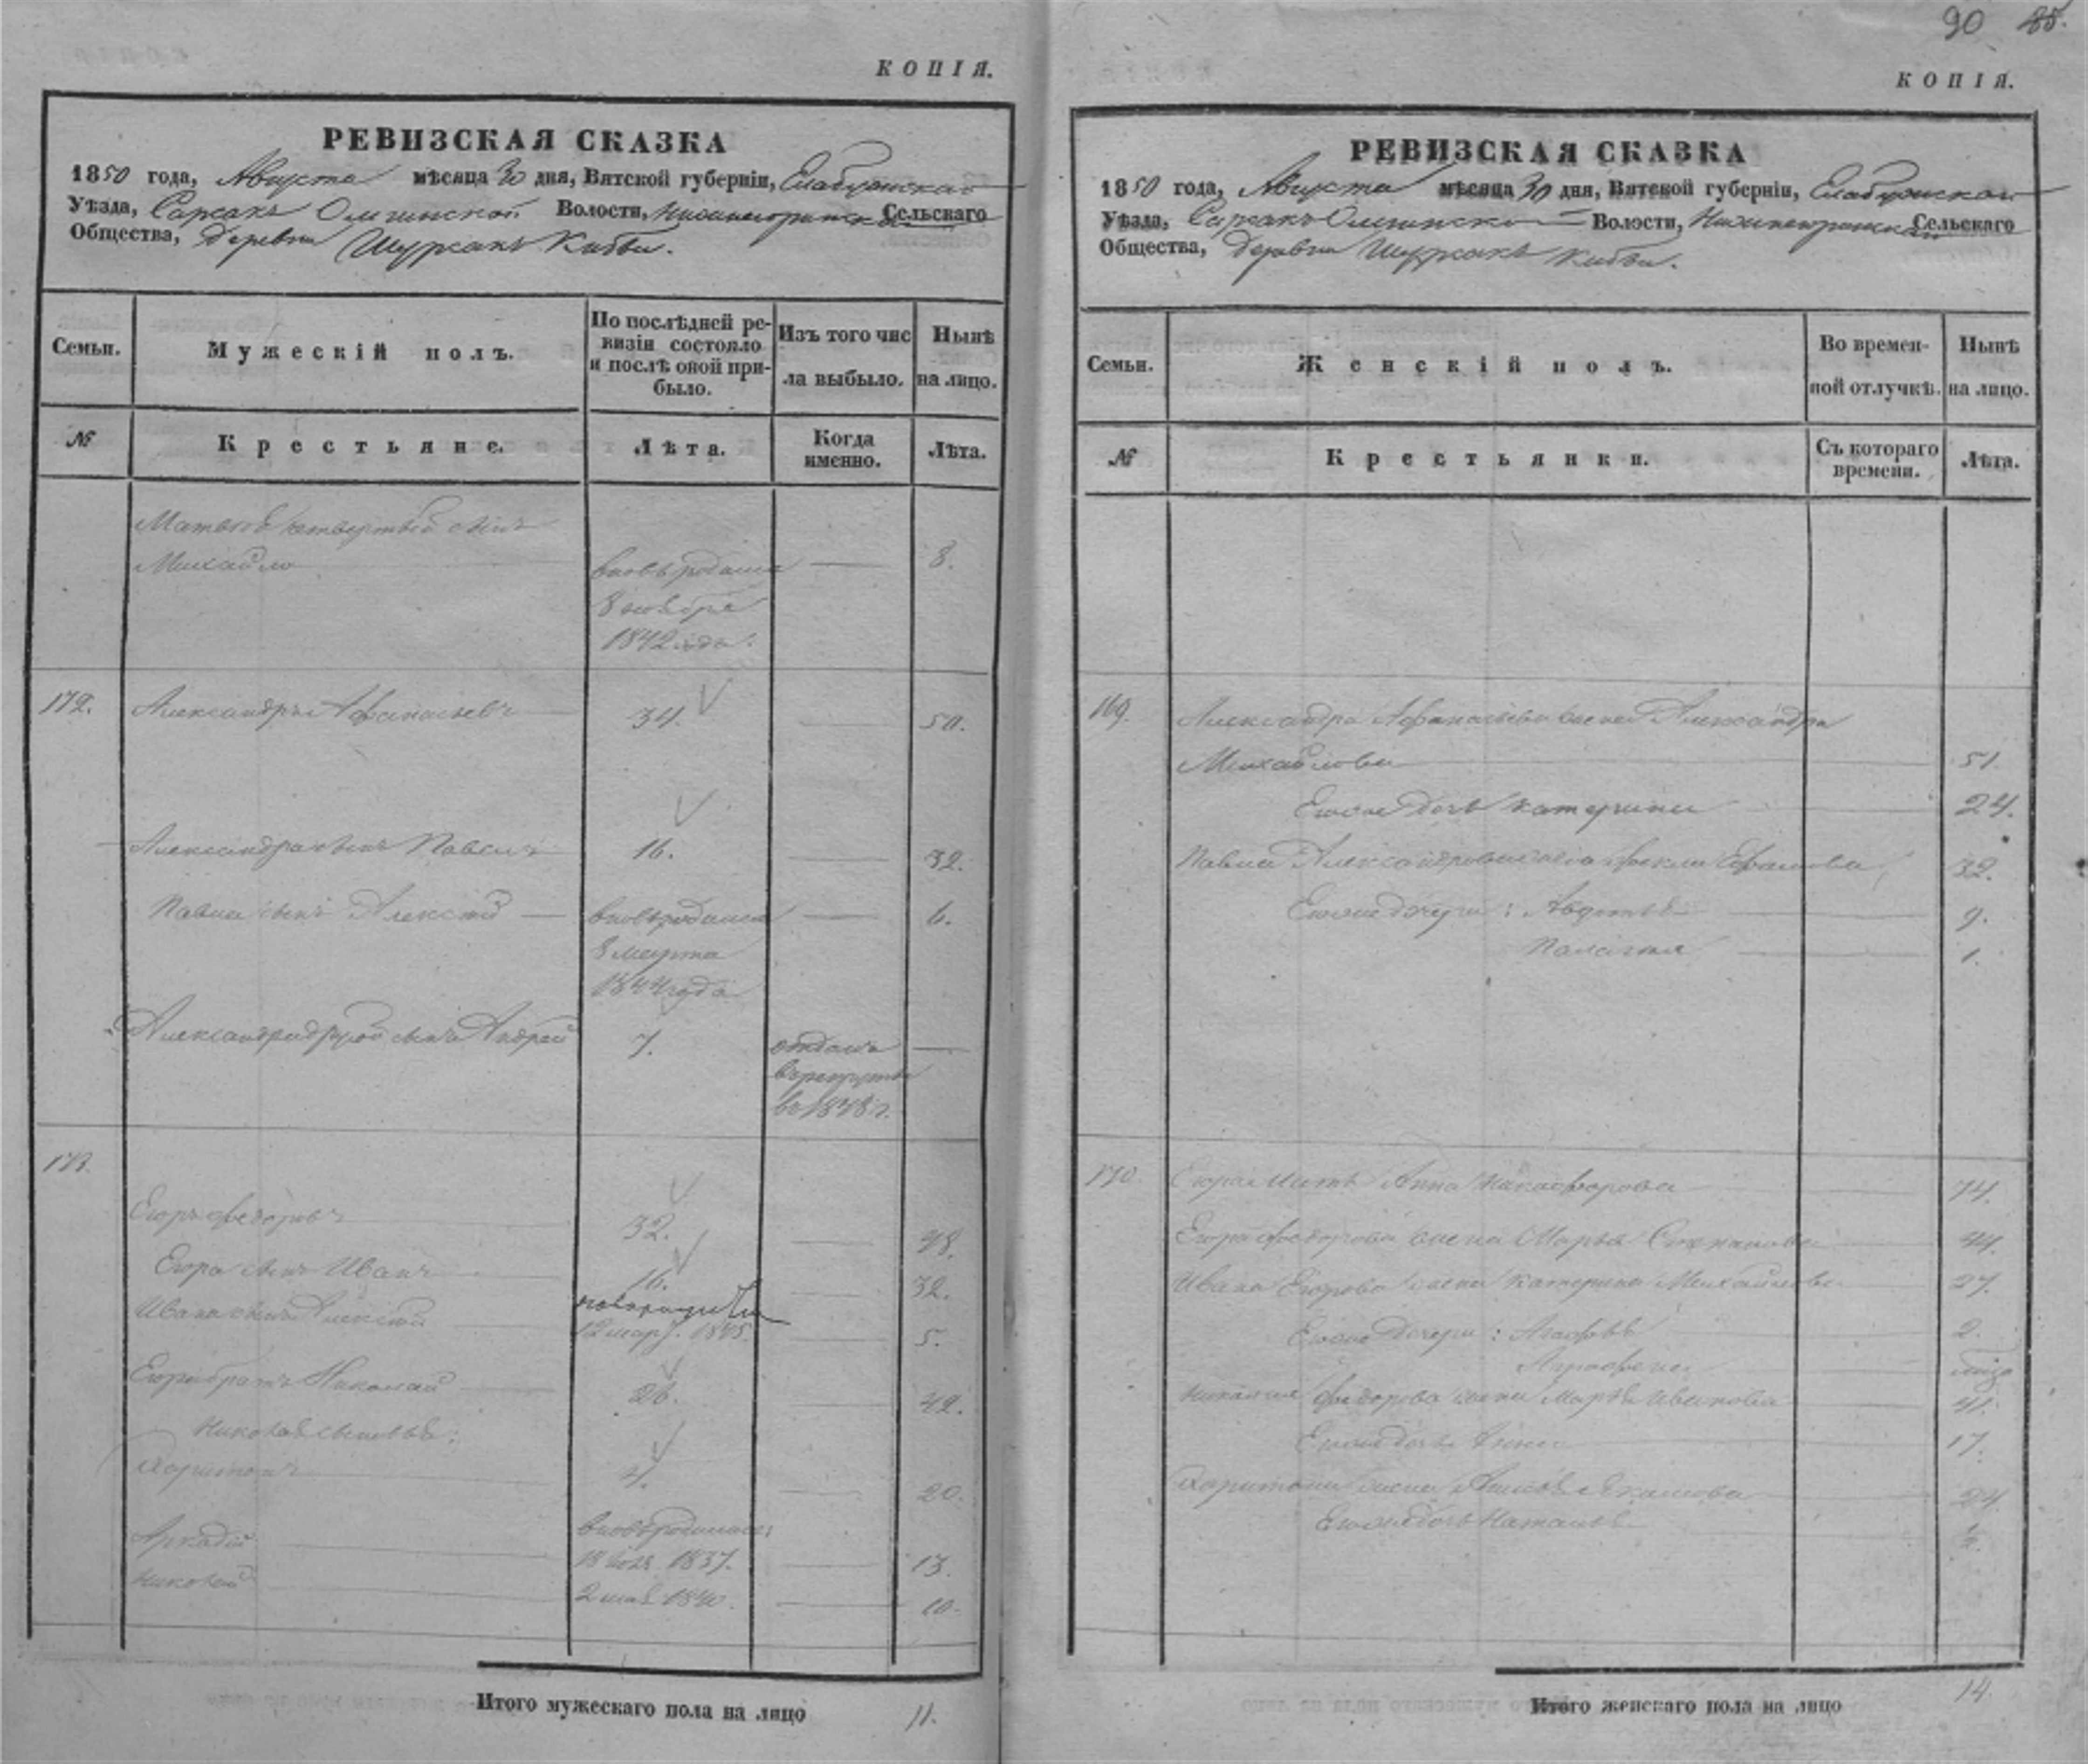 КОПІЯ.
РЕВИЗСКАЯ СКАЗКА
1850 года, Августа мѣсяца 30 дня, Вятской губерніи, Елабужскаго
Уѣзда, Сарсакъ Омгинской Волости, Сельскаго
Общества, Деревни Шурсакъ Кибьи.
Семьи.
Мужескій полъ.
По послѣдней ре-
визіи состояло
и послѣ оной при-
было.
Изъ того чис
ла выбыло.
Нынѣ
на лицо.
№
Крестьяне.
Лѣта.
Когда
именно.
Лѣта.
Матвѣя четвертый сынъ
Михайло вновь родился — 8.
8 ноября
1842 года.
172. Александръ Афанасьевъ 34. — 50.
Александра сынъ Павелъ 16. — 32.
Павла сынъ Алексѣй — вновь родился — 6.
8 марта
1844 года
Александра другой сынъ Андрей 7. отданъ —
в рекруты
въ 1848 г.
173.
Егоръ Федоровъ 32. — 48.
Егора сынъ Иванъ 16. — 32.
Ивана сынъ Алексѣй новорожден
12 мар. 1845. — 5.
Егора братъ Николай 26. — 42.
Николая сыновья:
Харитонъ 4. — 20.
вновь родились:
Аркадій 18 1837. — 13.
Николай 2 мая 1840. — 10.
Итого мужескаго пола на лицо 11.
90 85.
КОПІЯ.
РЕВИЗСКАЯ СКАЗКА
1850 года, Августа мѣсяца 30 дня, Вятской губерніи, Елабужскаго
Уѣзда, Сарсакъ Омгинской Волости, Сельскаго
Общества, Деревни Шурсакъ Кибьи.
Семьи.
Женскій полъ.
Во времен-
ной отлучкѣ.
Нынѣ
на лицо.
№
Крестьянки.
Съ котораго
времени.
Лѣта.
169. Александра Афанасьева жена Александра
Михайлова 51.
Егоже дочь Катерина 24.
Павла Александрова жена Фекла 32.
Егоже дочери: Авдотья 9.
Палагея 1.
170. Егора мать Анна Никифорова 74.
Егора Федорова жена Марья Степанова 44.
Ивана Егорова жена Катерина Михайлова 27.
Егоже дочери: Агафья 2.
Аграфена
Николая Федорова жена Марья Иванова 41.
Егоже дочь Анна 17.
Харитона жена 24.
Егоже дочь Наталья
Итого женскаго пола на лицо 14.